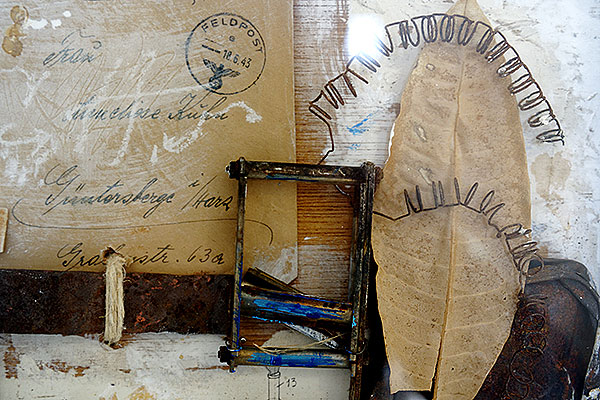 FELDPOST
a
-18.6.43
Frau
Anneliese Kühn
Güntersberge i/Harz
Grabenstr. 63a
13